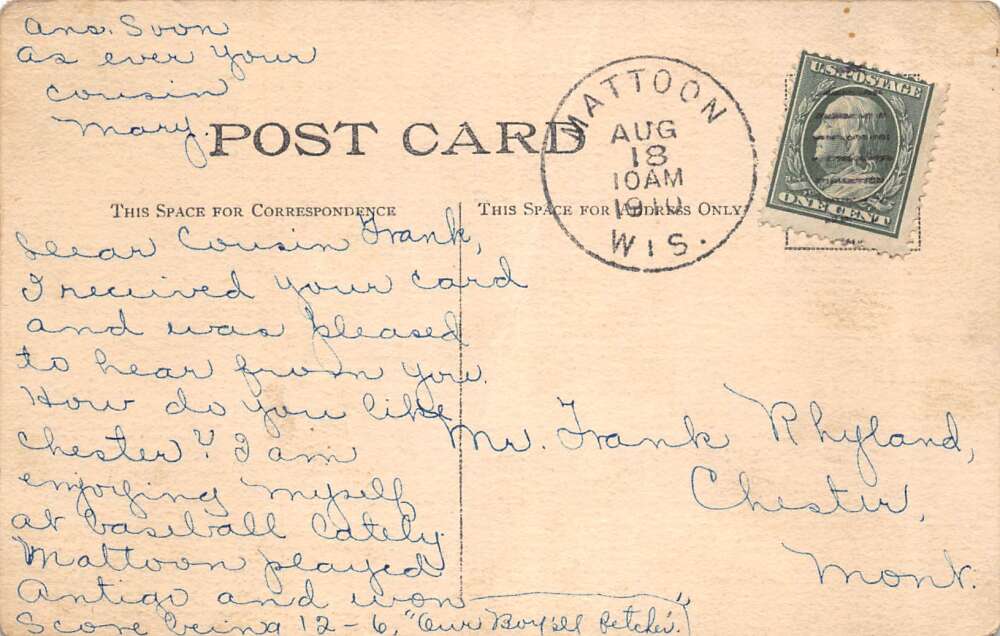 Ans. Soon
As ever your
cousin
Mary.
POST CARD
MATTOON
AUG
18
10AM
1910
WIS.
U.S. POSTAGE
ONE CENT
THIS SPACE FOR CORRESPONDENCE
THIS SPACE FOR ADDRESS ONLY
Dear Cousin Frank,
I received your card
and was pleased
to hear from you.
How do you like
Chester? I am
enjoying myself
at baseball lately.
Mattoon played
Antigo and won
Score being 12-6, "Our Boys'll Betcher."
Mr. Frank Rhyland,
Chester,
Mont.